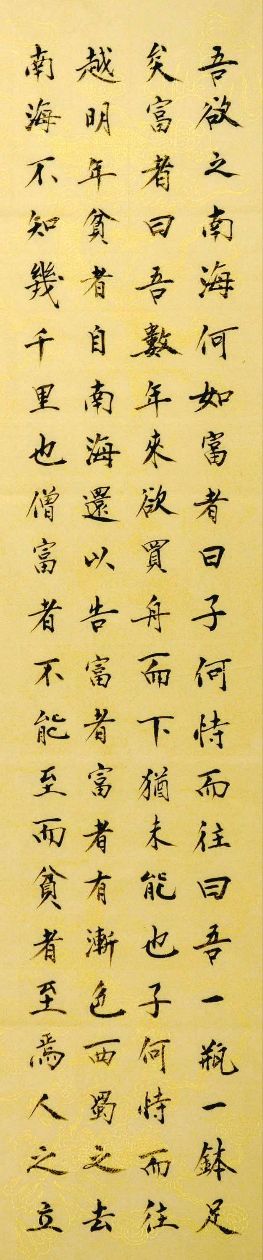 吾欲之南海何如富者曰子何恃而往曰吾一瓶一鉢足
矣富者曰吾數年來欲買舟而下猶未能也子何恃而往
越明年貧者自南海還以告富者富者有漸色西蜀之去
南海不知幾千里也僧富者不能至而貧者至焉人之立